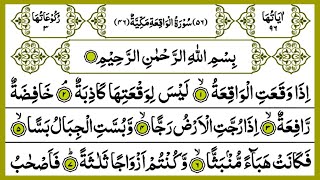 اٰیَاتُهَا ٩٦
(٥٦) سُوْرَةُ الْوَاقِعَةِ مَكِّیَّةٌ (٤٦)
رُكُوْعَاتُهَا ٣
بِسْمِ اللّٰهِ الرَّحْمٰنِ الرَّحِیْمِ
اِذَا وَقَعَتِ الْوَاقِعَةُ ۙ ١ لَیْسَ لِوَقْعَتِهَا كَاذِبَةٌ ۘ ٢ خَافِضَةٌ
رَّافِعَةٌ ۙ ٣ اِذَا رُجَّتِ الْاَرْضُ رَجًّا ۙ ٤ وَّ بُسَّتِ الْجِبَالُ بَسًّا ۙ ٥
فَكَانَتْ هَبَآءً مُّنْۢبَثًّا ۙ ٦ وَّ كُنْتُمْ اَزْوَاجًا ثَلٰثَةً ؕ ٧ فَاَصْحٰبُ